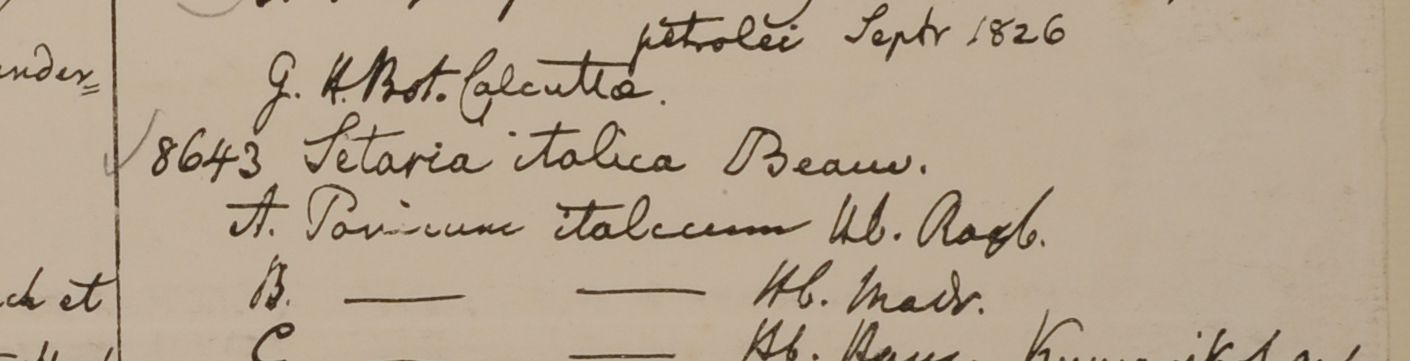 petrolei Septr 1826
G. H. Bot. Calcutta.
8643 Setaria italica Beauv.
A. Panicum italicum Hb. Roxb.
ch et B. — — Hb. Madr.
C — — Hb.